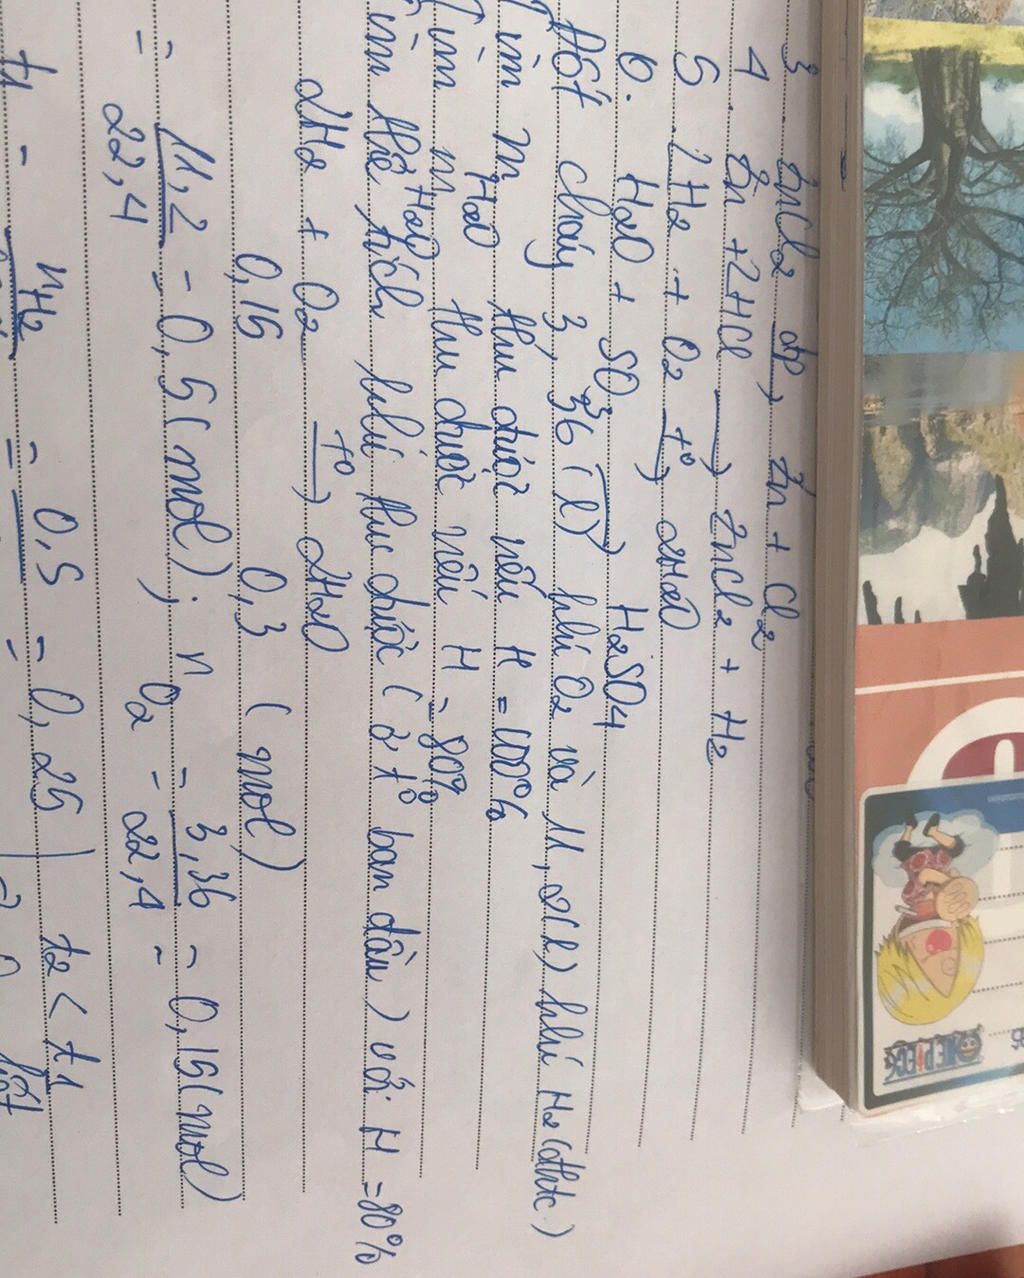 3. ZnCl2 đp→ Zn + Cl2
4. Zn + 2HCl → ZnCl2 + H2
5. 2H2 + O2 t°→ 2H2O
6. H2O + SO3 → H2SO4
Đốt cháy 3,36 (l) khí O2 và 11,2(l) khí H2 (đktc)
Tìm mH2O thu được nếu H = 100%
Tìm mH2O thu được nếu H = 80%
Tìm thể tích khí thu được (ở t° ban đầu) với H = 80%
2H2 + O2 t°→ 2H2O
0,15 0,3 (mol)
= 11,2/22,4 = 0,5 (mol); nO2 = 3,36/22,4 = 0,15 (mol)
t1 = nH2 = 0,5 = 0,25 | t2 < t1
ONE PIECE